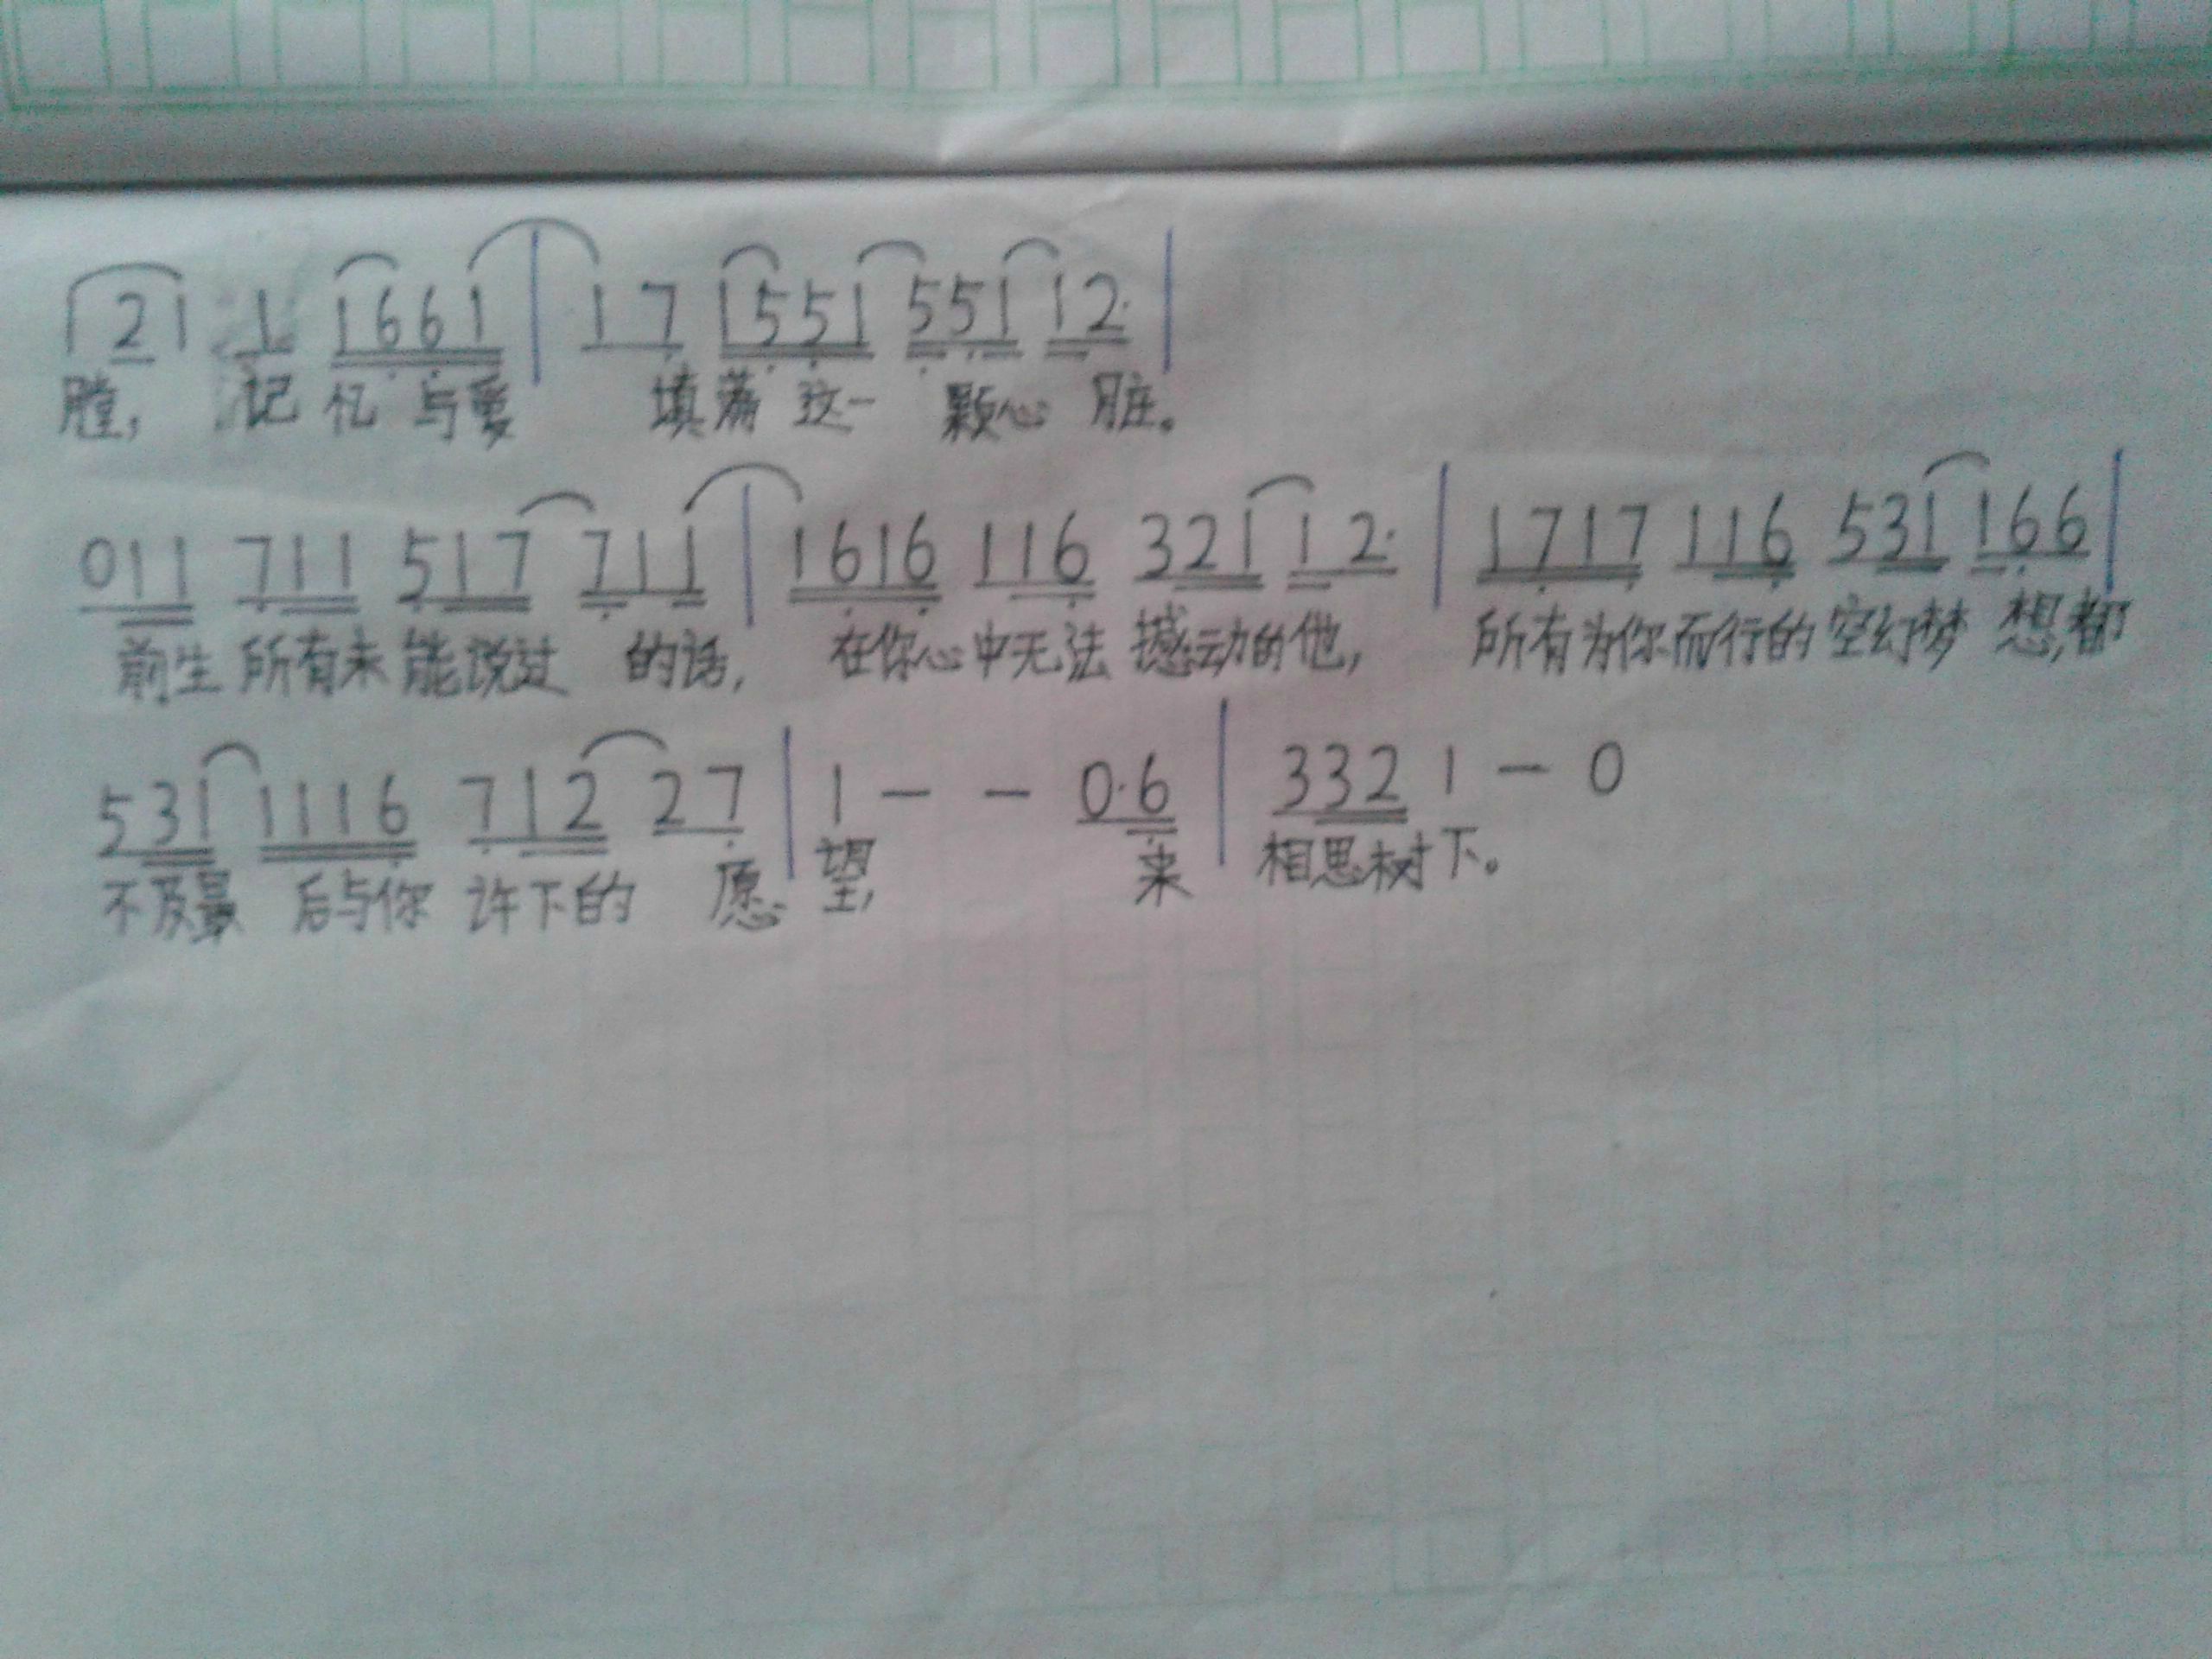 1 2 1 1 1661 | 1 7 1551 551 12· |
膛， 记 忆 与爱 填满 这一 颗心 脏。
011 711 517 711 | 1616 116 321 12· | 1717 116 531 166 |
前生 所有未 能说过 的话， 在你心中无法 撼动的他， 所有为你而行的 空幻梦 想，都
531 1116 712 27 | 1 — — 0·6 | 332 1 — 0
不及最 后与你 许下的 愿 望， 来 相思树下。